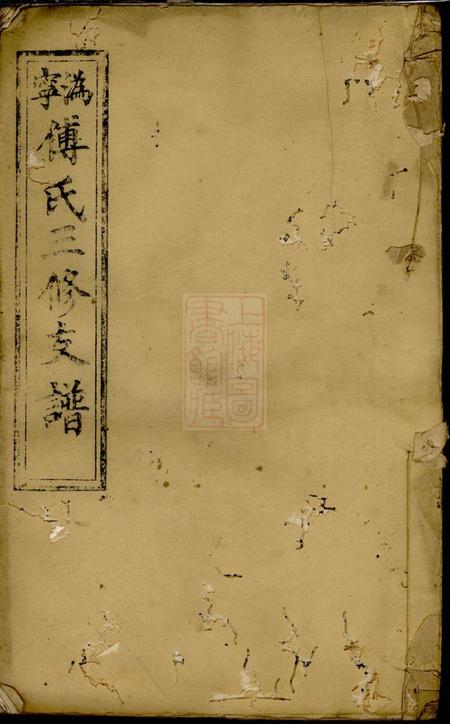 潙寧
傅氏三修支譜
上海圖
書館藏